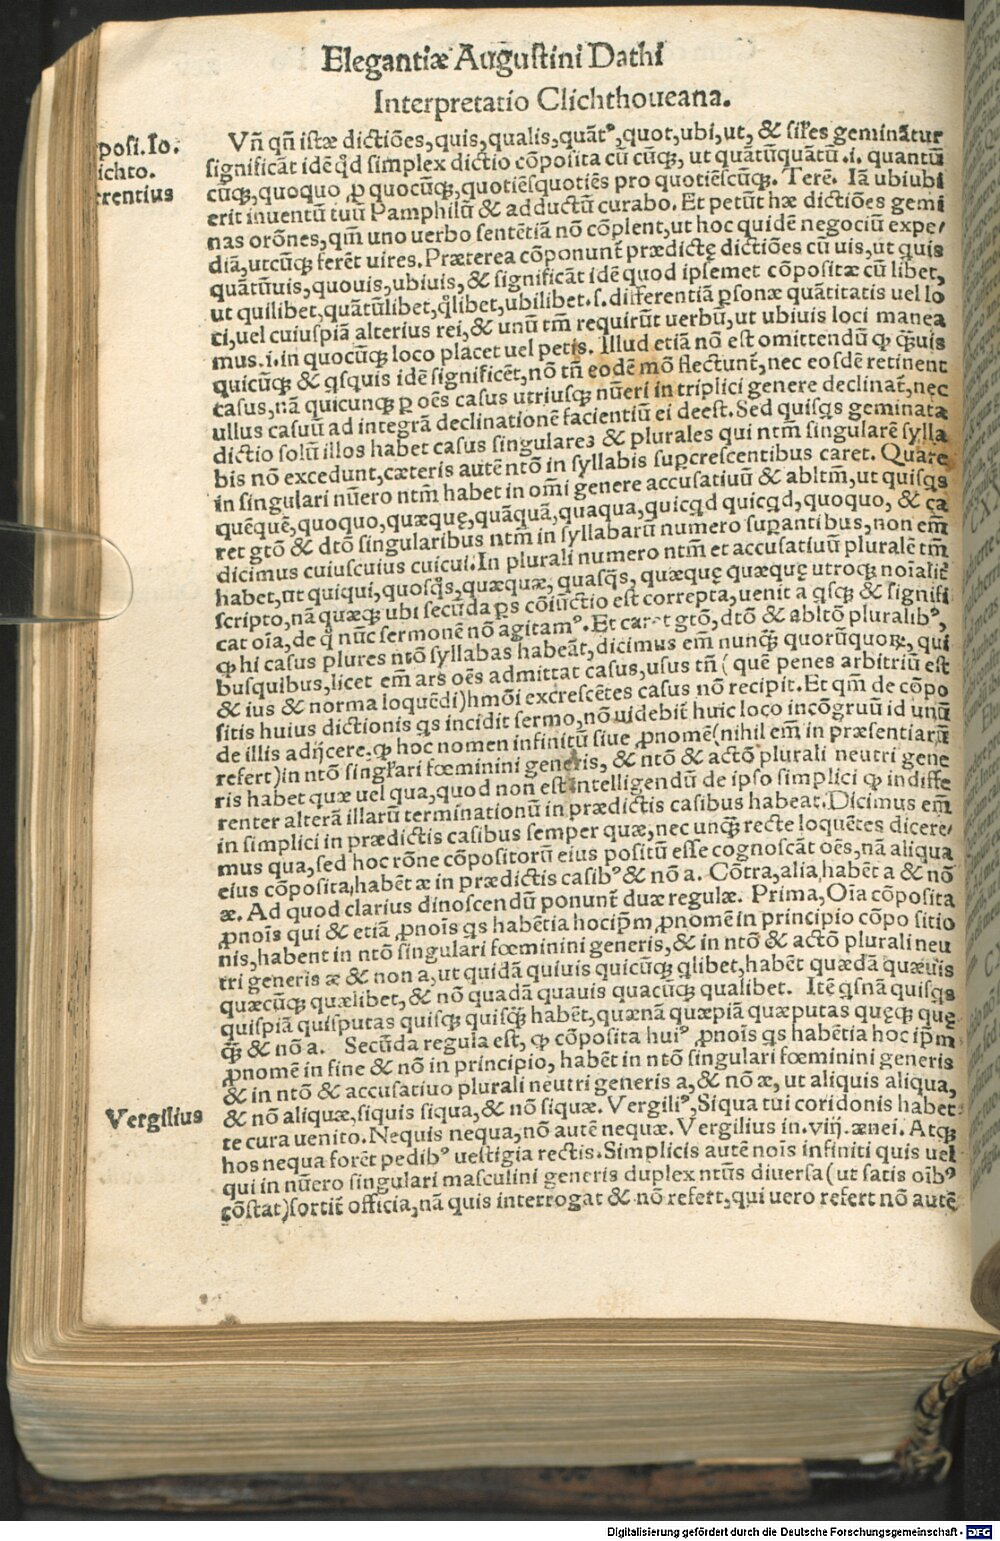 Elegantiæ Augustini Dathi
Interpretatio Clichthoueana.
posi. Io.
ichto.
rentius
Vñ qñ istæ dictiões, quis, qualis, quãtꝰ, quot, ubi, ut, & siles geminãtur
significãt idẽ qd simplex dictio cõposita cũ cũqꝫ, ut quãtũquãtũ .i. quantũ
cũqꝫ, quoquo ꝓ quocũqꝫ, quotiẽsquotiẽs pro quotiẽscũqꝫ. Terẽ. Iã ubiubi
erit inuentũ tuũ Pamphilũ & adductũ curabo. Et petũt hæ dictiões gemi
nas orõnes, qm̃ uno uerbo sentẽtiã nõ cõplent, ut hoc quidẽ negociũ expe/
diã, utcũqꝫ ferẽt uires. Præterea cõponunt̃ prædictę dictiões cũ uis, ut quis
quãtũuis, quouis, ubiuis, & significãt idẽ quod ipsemet cõpositæ cũ libet,
ut quilibet, quãtũlibet, qlibet, ubilibet. s. differentiã ꝑsonæ quãtitatis uel lo
ci, uel cuiuspiã alterius rei, & unũ tm̃ requirũt uerbũ, ut ubiuis loci manea
mus .i. in quocũqꝫ loco placet uel petis. Illud etiã nõ est omittendũ ꝙ qꝫuis
quicũqꝫ & qsquis idẽ significẽt, nõ tñ eodẽ mõ flectunt̃, nec eosdẽ retinent
casus, nã quicunqꝫ ꝑ oẽs casus utriusqꝫ nũeri in triplici genere declinat̃, nec
ullus casuũ ad integrã declinationẽ facientiũ ei deest. Sed quisqs geminata
dictio solũ illos habet casus singulareꝫ & plurales qui ntm̃ singularẽ sylla
bis nõ excedunt, cæteris autẽ ntõ in syllabis suꝑcrescentibus caret. Quare
in singulari nũero ntm̃ habet in om̃i genere accusatiuũ & abltm̃, ut quisqs
quẽquẽ, quoquo, quæquę, quãquã, quaqua, quicqd quicqd, quoquo, & ca
ret gtõ & dtõ singularibus ntm̃ in syllabarũ numero suꝑantibus, non em̃
dicimus cuiuscuius cuicui. In plurali numero ntm̃ et accusatiuũ pluralẽ tm̃
habet, ut quiqui, quosqs, quæquæ, quasqs, quæquę quæquę utroqꝫ noialit̃
scripto, nã quæqꝫ ubi secũda ꝑs cõiũctio est correpta, uenit a qsqꝫ & signifi
cat oĩa, de q nũc sermonẽ nõ agitamꝰ. Et caret gtõ, dtõ & abltõ pluralibꝰ,
ꝙ hi casus plures ntõ syllabas habeãt, dicimus em̃ nunqꝫ quorũquoꝝ, qui
busquibus, licet em̃ ars oẽs admittat casus, usus tñ ( quẽ penes arbitriũ est
& ius & norma loquẽdi) hmõi excrescẽtes casus nõ recipit. Et qm̃ de cõpo
sitis huius dictionis qs incidit sermo, nõ uidebit̃ huic loco incõgruũ id unũ
de illis adijcere. ꝙ hoc nomen infinitũ siue ꝓnomẽ (nihil em̃ in præsentiarũ
refert) in ntõ singlari fœminini generis, & ntõ & actõ plurali neutri gene
ris habet quæ uel qua, quod non est intelligendũ de ipso simplici ꝙ indiffe
renter alterã illarũ terminationũ in prædictis casibus habeat. Dicimus em̃
in simplici in prædictis casibus semper quæ, nec unqꝫ recte loquẽtes dicere/
mus qua, sed hoc rõne cõpositorũ eius positũ esse cognoscãt oẽs, nã aliqua
eius cõposita, habẽt æ in prædictis casibꝰ & nõ a. Cõtra, alia, habẽt a & nõ
æ. Ad quod clarius dinoscendũ ponunt̃ duæ regulæ. Prima, Oĩa cõposita
ꝓnoĩs qui & etiã ꝓnoĩs qs habẽtia hocip̃m ꝓnomẽ in principio cõpo sitio
nis, habent in ntõ singulari fœminini generis, & in ntõ & actõ plurali neu
tri generis æ & non a, ut quidã quiuis quicũqꝫ qlibet, habẽt quædã quæuis
quæcũqꝫ quælibet, & nõ quadã quauis quacũqꝫ qualibet. Itẽ qsnã quisqs
quispiã quisputas quisqꝫ quisqꝫ habẽt, quænã quæpiã quæputas quęqꝫ quę
qꝫ & nõ a. Secũda regula est, ꝙ cõposita huiꝰ ꝓnoĩs qs habẽtia hoc ip̃m
ꝓnomẽ in fine & nõ in principio, habẽt in ntõ singulari fœminini generis
& in ntõ & accusatiuo plurali neutri generis a, & nõ æ, ut aliquis aliqua,
& nõ aliquæ, siquis siqua, & nõ siquæ. Vergiliꝰ, Siqua tui coridonis habet
Vergilius
te cura uenito. Nequis nequa, nõ autẽ nequæ. Vergilius in .viij. ænei. Atqꝫ
hos nequa forẽt pedibꝰ uestigia rectis. Simplicis autẽ noĩs infiniti quis uel
qui in nũero singulari masculini generis duplex ntũs diuersa (ut satis oĩbꝰ
cõstat) sortit̃ officia, nã quis interrogat & nõ refert, qui uero refert nõ autẽ
Digitalisierung gefördert durch die Deutsche Forschungsgemeinschaft - DFG